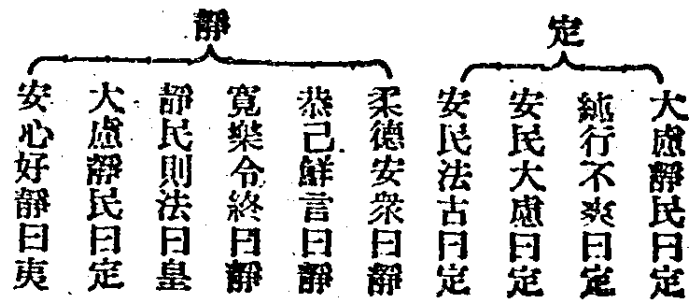 定
大慮靜民曰定
純行不爽曰定
安民大慮曰定
安民法古曰定
靜
柔德安衆曰靜
恭己鮮言曰靜
寬樂令終曰靜
靜民則法曰皇
大慮靜民曰定
安心好靜曰夷